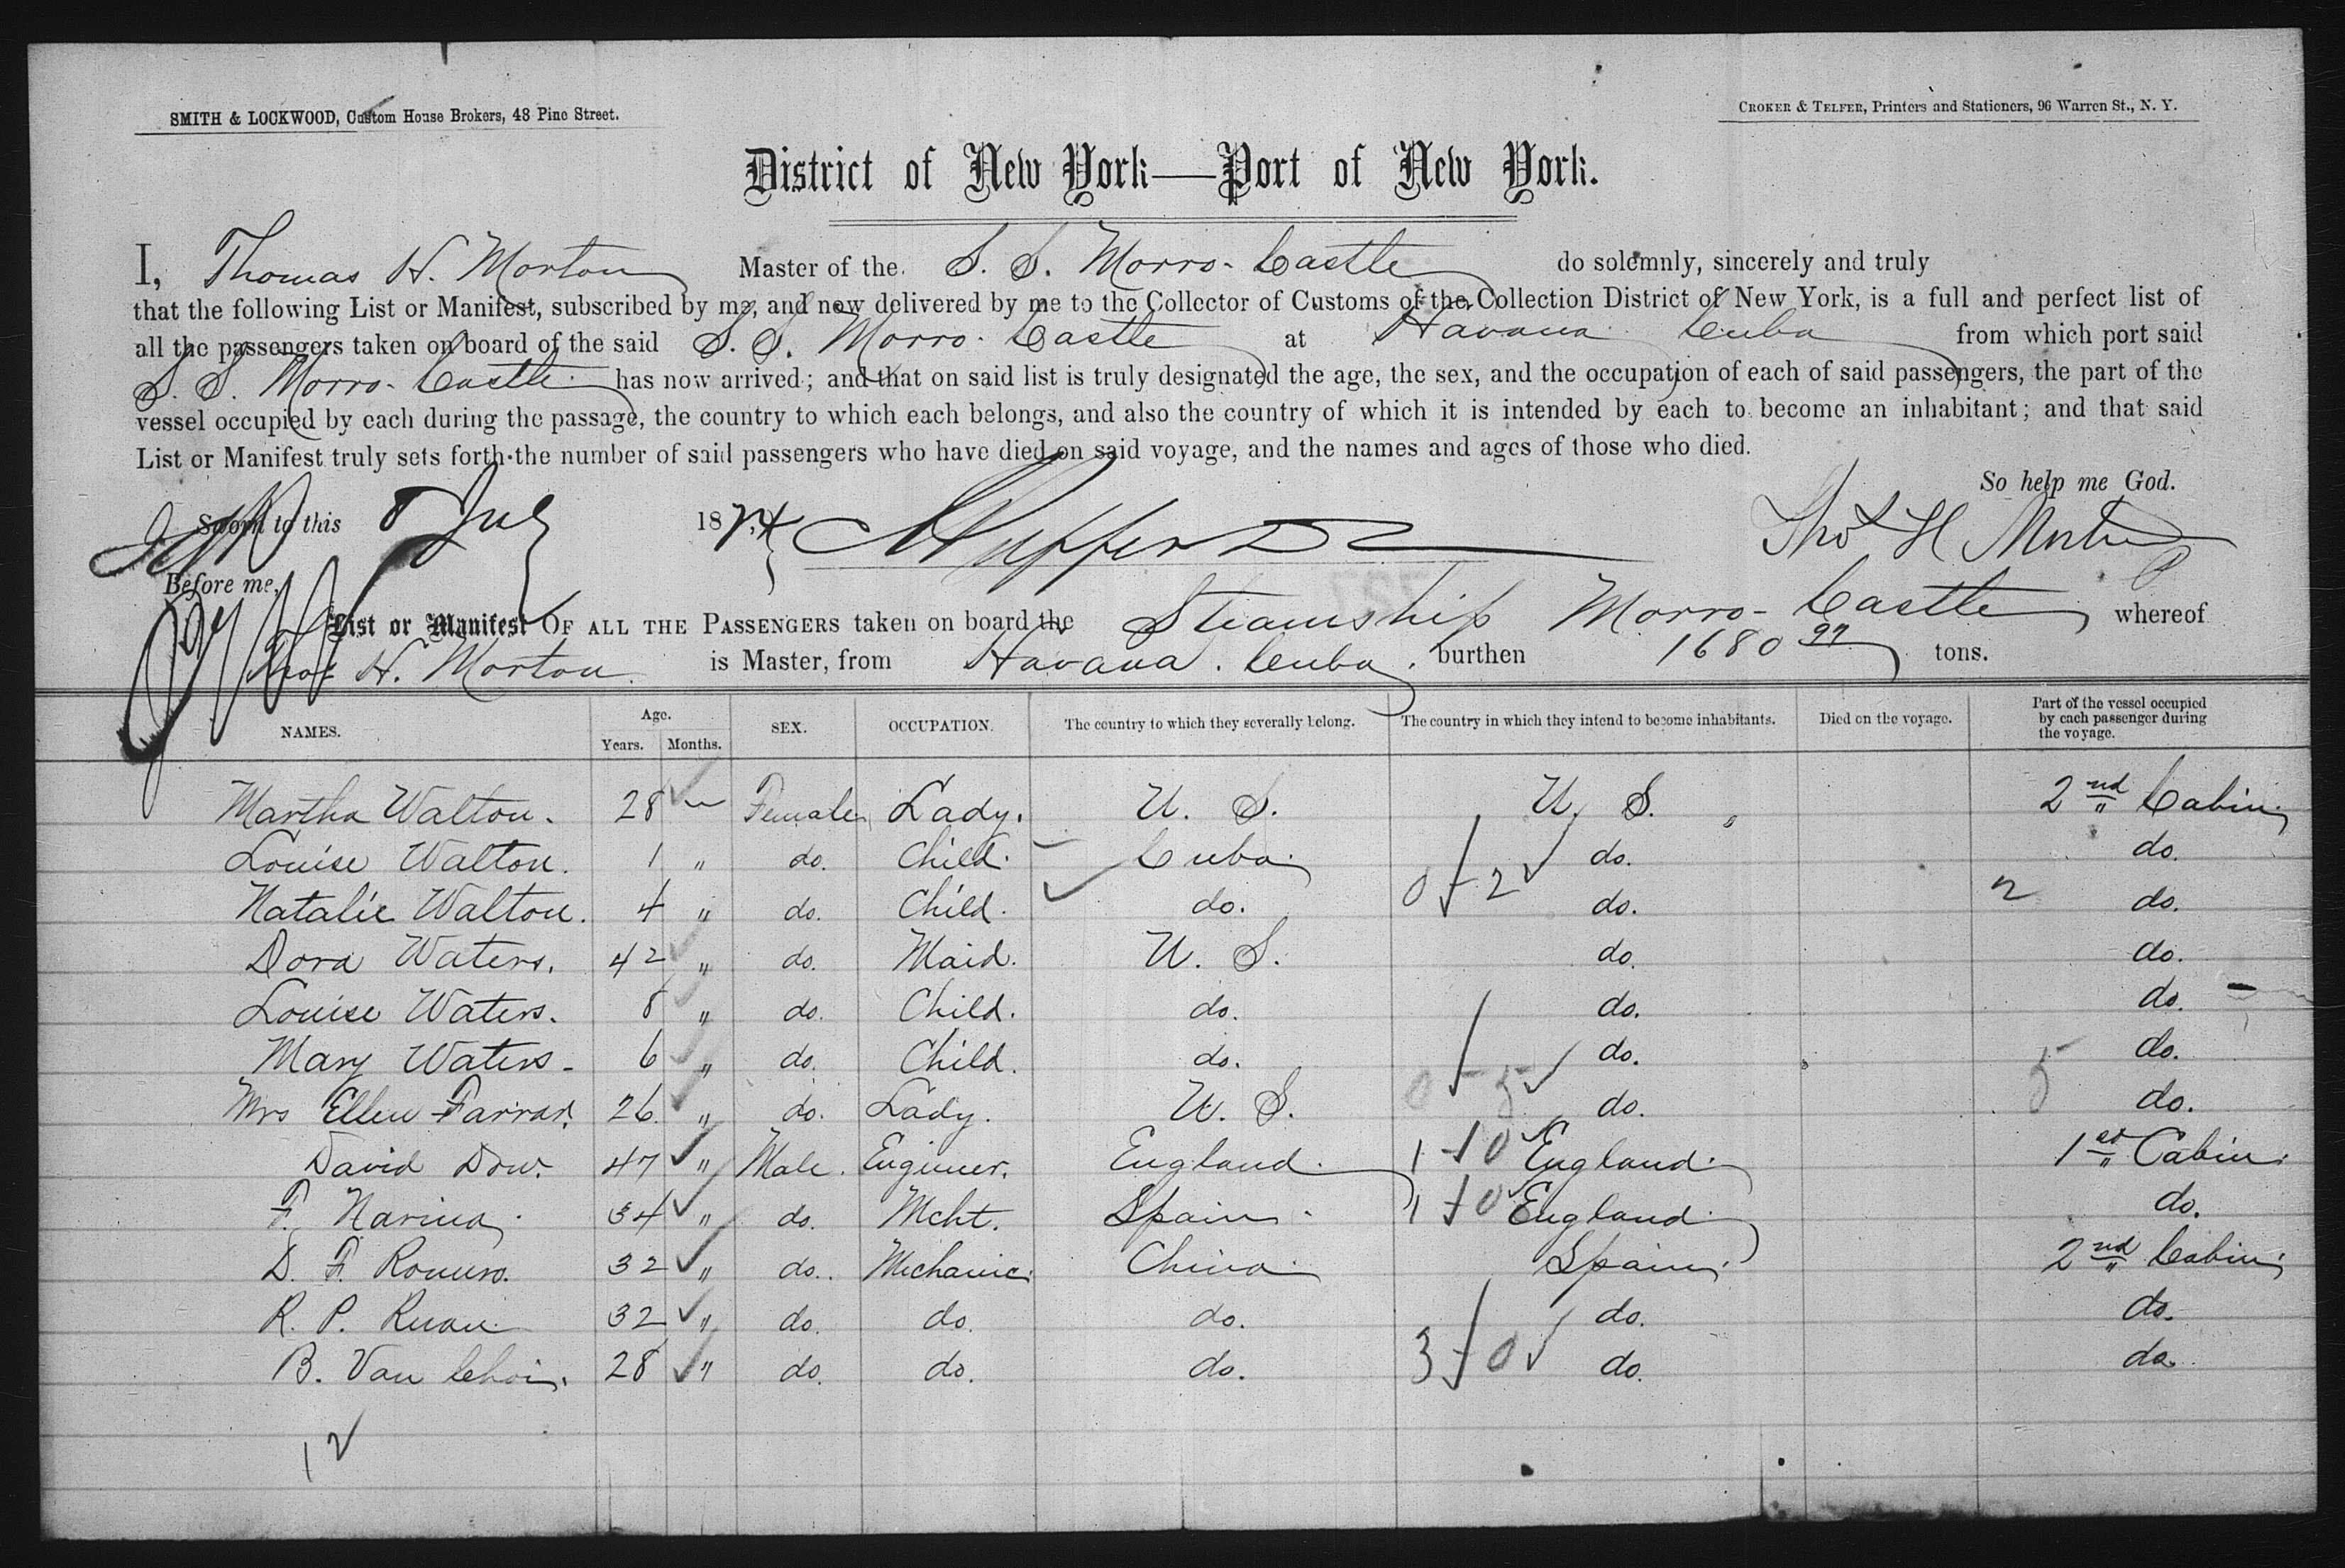 SMITH & LOCKWOOD, Custom House Brokers, 48 Pine Street.
CROKER & TELFER, Printers and Stationers, 96 Warren St., N. Y.
District of New York—Port of New York.
I, Thomas H. Morton Master of the S. S. Morro-Castle do solemnly, sincerely and truly
that the following List or Manifest, subscribed by me, and now delivered by me to the Collector of Customs of the Collection District of New York, is a full and perfect list of
all the passengers taken on board of the said S. S. Morro-Castle at Havana Cuba from which port said
S. S. Morro-Castle has now arrived; and that on said list is truly designated the age, the sex, and the occupation of each of said passengers, the part of the
vessel occupied by each during the passage, the country to which each belongs, and also the country of which it is intended by each to become an inhabitant; and that said
List or Manifest truly sets forth the number of said passengers who have died on said voyage, and the names and ages of those who died.
So help me God.
Sworn to this 8 July 1874 Thos H Morton
Before me,
List or Manifest OF ALL THE PASSENGERS taken on board the Steamship Morro-Castle whereof
Thos H. Morton. is Master, from Havana. Cuba. burthen 1680 97 tons.
NAMES. Age. Years. Months. SEX. OCCUPATION. The country to which they severally belong. The country in which they intend to become inhabitants. Died on the voyage. Part of the vessel occupied by each passenger during the voyage.
Martha Walton. 28 Female Lady. U. S. U. S. 2nd Cabin
Louise Walton. 1 " do. Child. Cuba. do. do.
Natalie Walton. 4 " do. Child. do. 0 - 2 do. 2 do.
Dora Waters. 42 " do. Maid. U. S. do. do.
Louise Waters. 8 " do. Child. do. do. do.
Mary Waters. 6 " do. Child. do. do. do.
Mrs Ellen Farrar. 26 " do. Lady. U. S. 0 - 5 do. 5 do.
David Dow. 47 " Male. Engineer. England. 1 - 0 England. 1st Cabin.
F. Narina 34 " do. Mcht. Spain. 1 - 0 England. do.
D. F. Romero. 32 " do. Mechanic. China. Spain. 2nd Cabin.
R. P. Ruan. 32 " do. do. do. do. do.
B. Van 28 " do. do. do. 3 - 0 do. do.
12